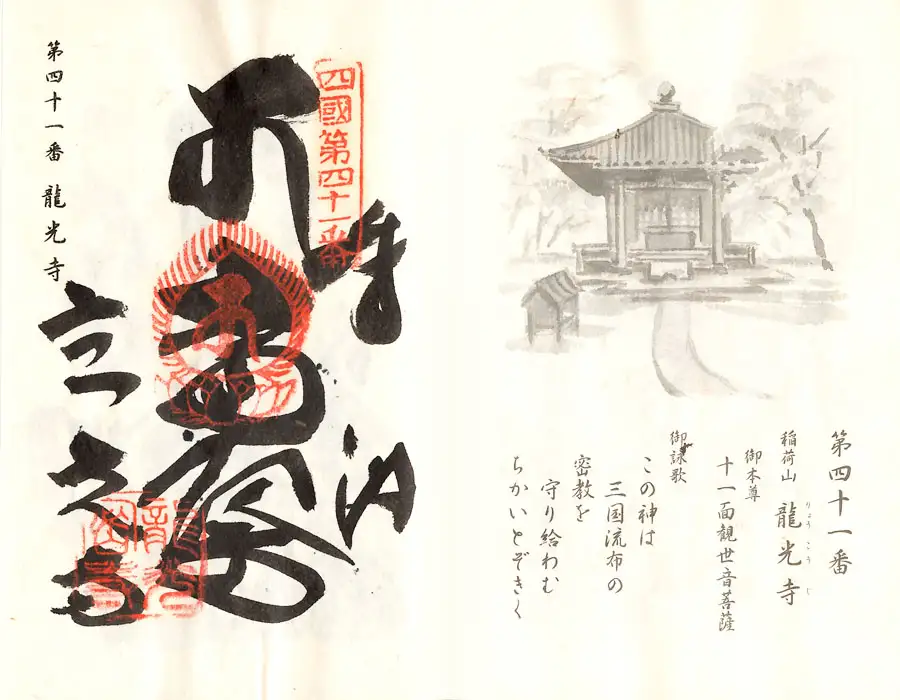 第四十一番
稲荷山 龍光寺
りょうこうじ
御本尊
十一面観世音菩薩
御詠歌
この神は
三国流布の
密教を
守り給わむ
ちかいとぞきく
四國第四十一番
奉
納
第四十一番 龍光寺